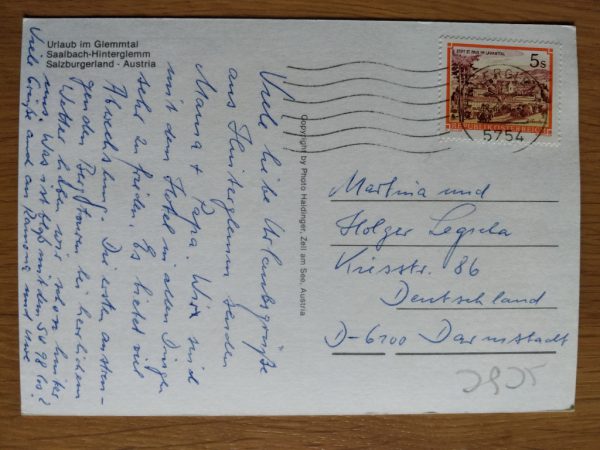 Urlaub im Glemmtal
Saalbach-Hinterglemm
Salzburgerland · Austria
Viele liebe Urlaubsgrüße
aus Hinterglemm senden
Mama + Papa. Wir sind
mit dem Hotel in allen Dingen
sehr zufrieden. Es bietet viel
Abwechslung. Die ersten anstren-
genden Bergtouren bei herrlichem
Wetter haben wir schon hinter
uns. Was ist bloß mit den SV 98 los?
Viele Grüße auch an und
Copyright by Photo Haidinger, Zell am See, Austria
STIFT ST. PAUL IM LAVANTTAL
5s
REPUBLIK ÖSTERREICH
5754
Martina und
Holger
86
Deutschland
D-6100 Darmstadt